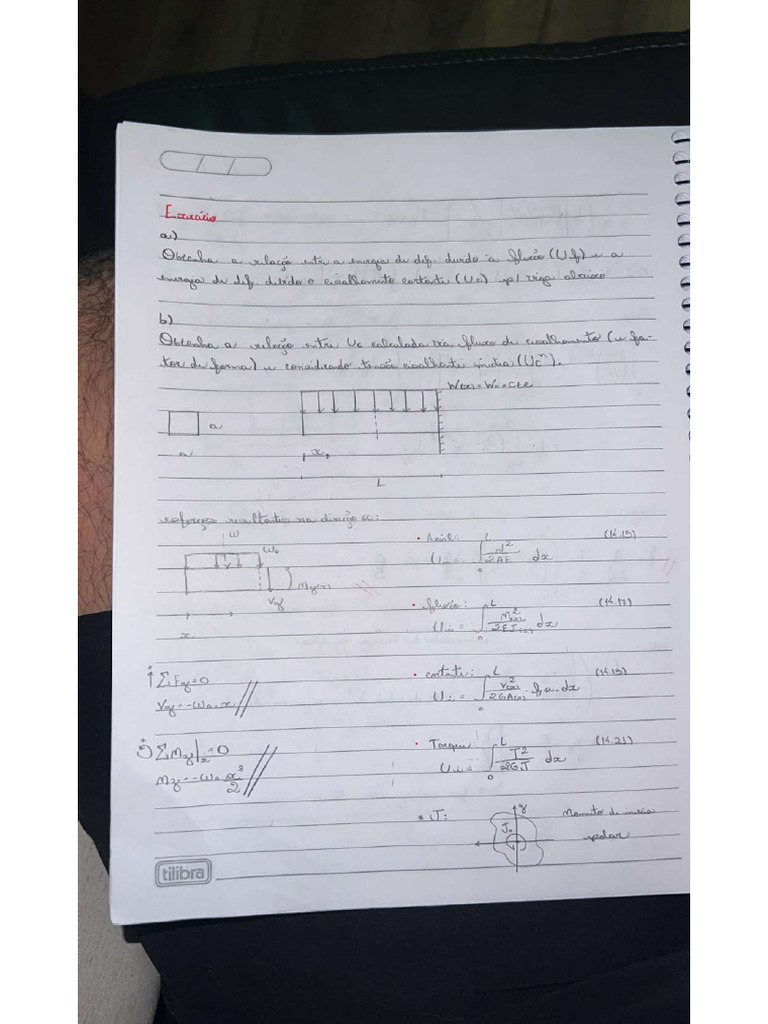 Exercício
a)
Obtenha a relação entre a energia de def. devido à flexão (Uf) e a
energia de def. devido o cisalhamento cortante (Uc) p/ viga abaixo
b)
Obtenha a relação entre Uc calculada via fluxo de cisalhamento (e fa-
tor de forma) e considerando tensão cisalhante média (Uc^m).
W(x) = W0 = Cte
a
a
x
L
esforços resultantes na direção x:
• Axial: Ui = ∫₀ᴸ N²/2AE dx (14.15)
W
W0
My(x)
Vy
x
• flexão: Ui = ∫₀ᴸ M²(x)/2EJ(x) dx (14.17)
+↑ΣFy=0
Vy=-W0.x //
• cortante: Ui = ∫₀ᴸ V²(x)/2GA(x) . fa.dx (14.19)
ΣMy|x=0
My=-W0 x²/2 //
• Torque: Ui = ∫₀ᴸ T²/2GJ dx (14.21)
• J:
y
J0
Momento de inércia
polar
tilibra